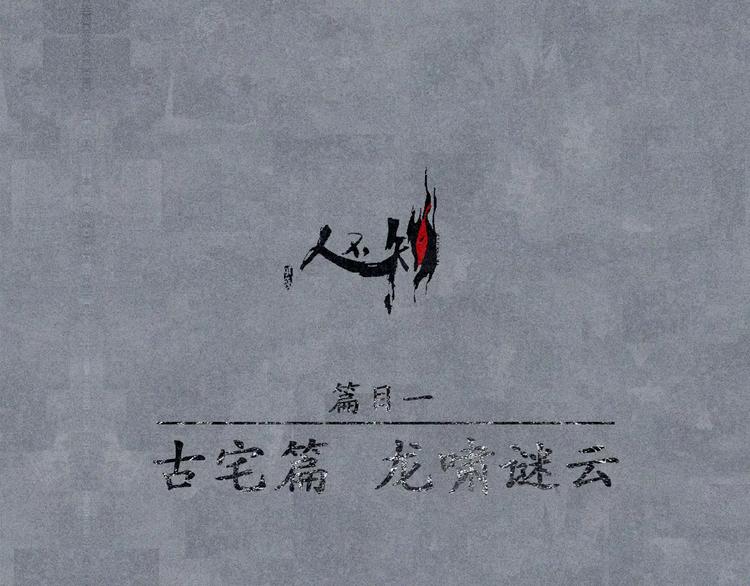 人不知
篇目一
古宅篇 龙啸谜云